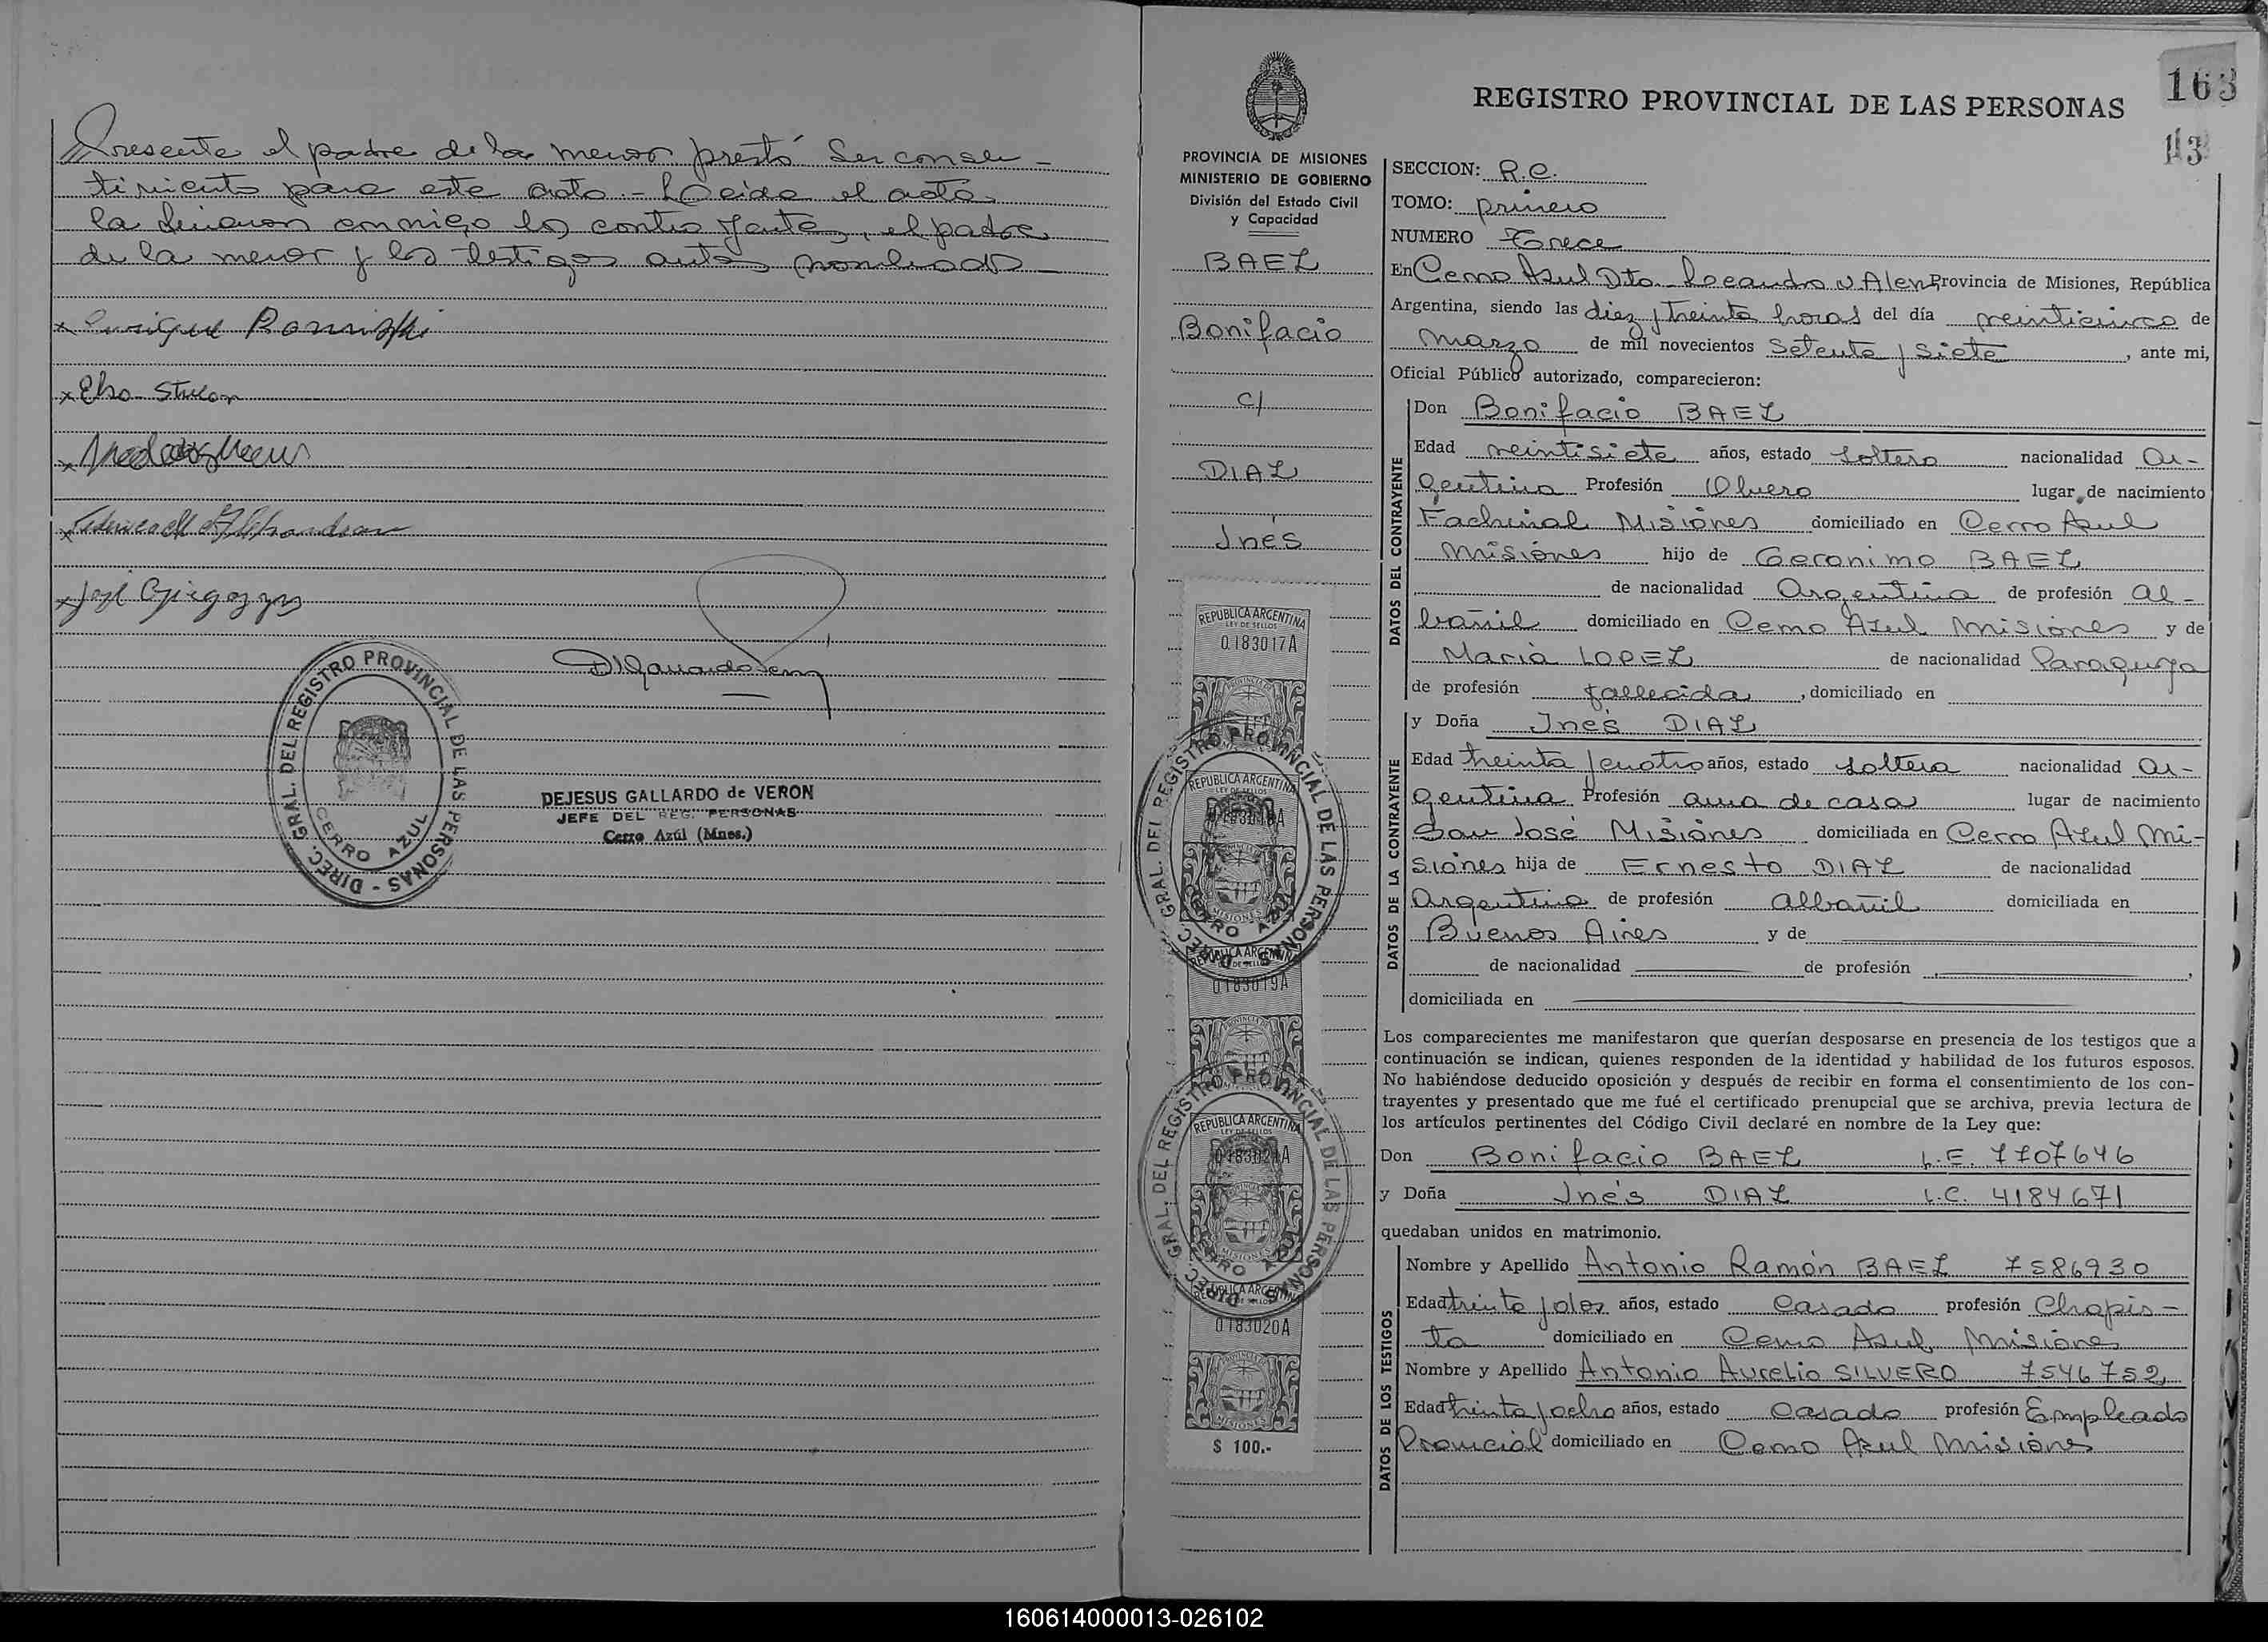 Presente el padre de la menor prestó su consen-
timiento para este acto.- Leida el acta
la firmaron conmigo los contrayentes, el padre
de la menor y los testigos antes nombrados
x Enrique
x Elsa
x
x
x José
DIREC. GRAL. DEL REGISTRO PROVINCIAL DE LAS PERSONAS -
CERRO AZUL
DEJESUS GALLARDO de VERON
JEFE DEL REG. PERSONAS
Cerro Azúl (Mnes.)
163
13
REGISTRO PROVINCIAL DE LAS PERSONAS
PROVINCIA DE MISIONES
MINISTERIO DE GOBIERNO
División del Estado Civil
y Capacidad
BAEZ
Bonifacio
c/
DIAZ
Inés
REPUBLICA ARGENTINA
LEY DE SELLOS
0183017A
REPUBLICA ARGENTINA
LEY DE SELLOS
0183018A
MISIONES
DIREC. GRAL. DEL REGISTRO PROVINCIAL DE LAS PERSONAS
CERRO AZUL
REPUBLICA ARGENTINA
0183019A
REPUBLICA ARGENTINA
LEY DE SELLOS
0183021A
MISIONES
DIREC. GRAL. DEL REGISTRO PROVINCIAL DE LAS PERSONAS
CERRO AZUL
REPUBLICA ARGENTINA
0183020A
MISIONES
$ 100.-
SECCION: R.C.
TOMO: primero
NUMERO Trece
En Cerro Azul Dto. Leandro N Alem Provincia de Misiones, República
Argentina, siendo las diez y treinta horas del día veinticinco de
marzo de mil novecientos setenta y siete, ante mi,
Oficial Público autorizado, comparecieron:
DATOS DEL CONTRAYENTE
Don Bonifacio BAEZ
Edad veintisiete años, estado soltero nacionalidad Ar-
gentina Profesión Obrero lugar de nacimiento
Fachinal Misiones domiciliado en Cerro Azul
Misiones hijo de Geronimo BAEZ
de nacionalidad Argentina de profesión al-
bañil domiciliado en Cerro Azul Misiones y de
Maria LOPEZ de nacionalidad Paraguya
de profesión fallecida, domiciliado en
DATOS DE LA CONTRAYENTE
y Doña Inés DIAZ
Edad treinta y cuatro años, estado soltera nacionalidad Ar-
gentina Profesión ama de casa lugar de nacimiento
San José Misiones domiciliada en Cerro Azul Mi-
siones hija de Ernesto DIAZ de nacionalidad
Argentina de profesión albañil domiciliada en
Buenos Aires y de
de nacionalidad de profesión ,
domiciliada en
Los comparecientes me manifestaron que querían desposarse en presencia de los testigos que a
continuación se indican, quienes responden de la identidad y habilidad de los futuros esposos.
No habiéndose deducido oposición y después de recibir en forma el consentimiento de los con-
trayentes y presentado que me fué el certificado prenupcial que se archiva, previa lectura de
los artículos pertinentes del Código Civil declaré en nombre de la Ley que:
Don Bonifacio BAEZ L.E. 7707646
y Doña Inés DIAZ L.C. 4184671
quedaban unidos en matrimonio.
DATOS DE LOS TESTIGOS
Nombre y Apellido Antonio Ramón BAEZ 7586930
Edad treinta y dos años, estado Casado profesión Chapis-
ta domiciliado en Cerro Azul Misiones
Nombre y Apellido Antonio Aurelio SILVERO 7546752
Edad treinta y ocho años, estado Casado profesión Empleado
Provincial domiciliado en Cerro Azul Misiones
160614000013-026102